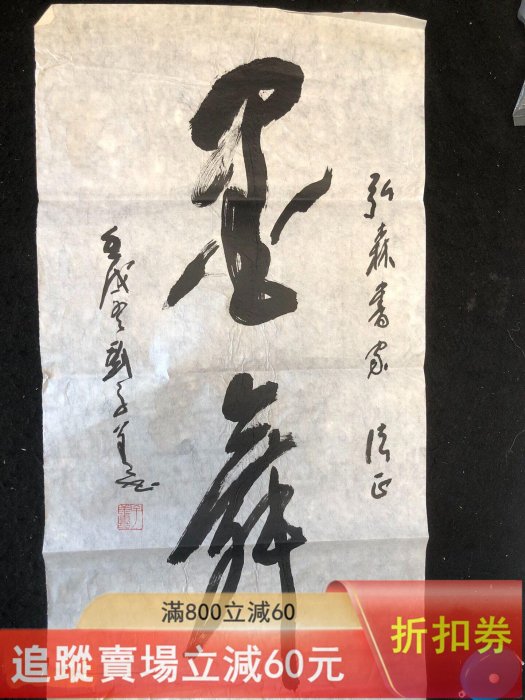 弘森書家 正
墨舞
壬戌冬劉子
滿800立減60
追蹤賣場立減60元
折扣券